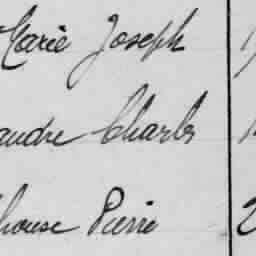 Marie Joseph 1
andre Charles 1
honse Pierre 2